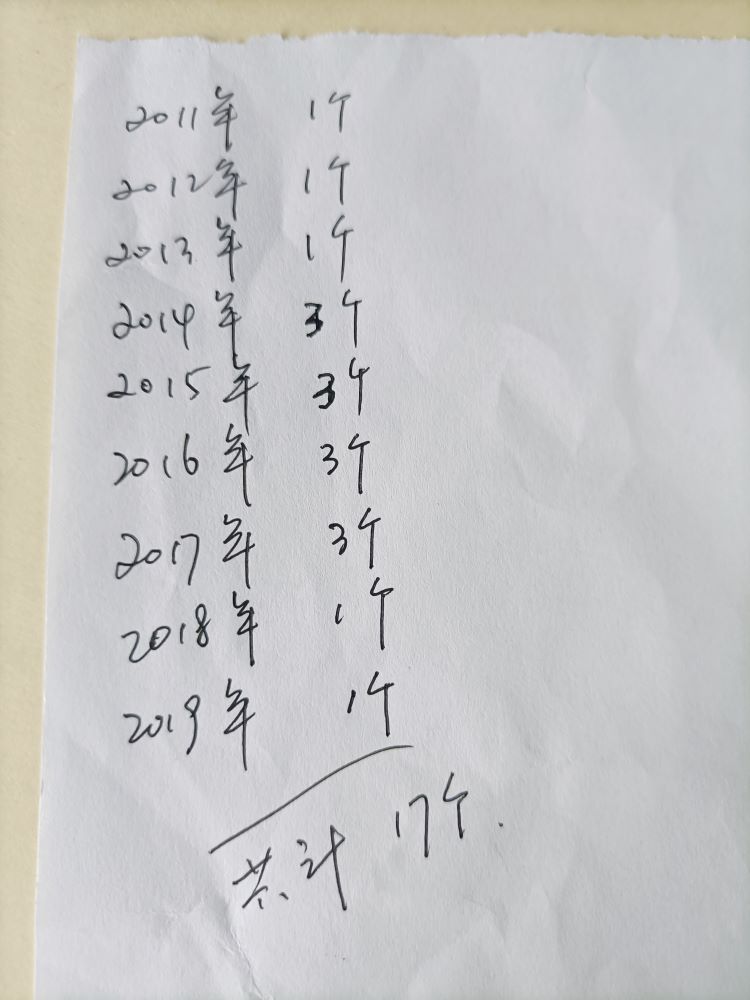 2011年 1个
2012年 1个
2013年 1个
2014年 3个
2015年 3个
2016年 3个
2017年 3个
2018年 1个
2019年 1个
共计 17个.